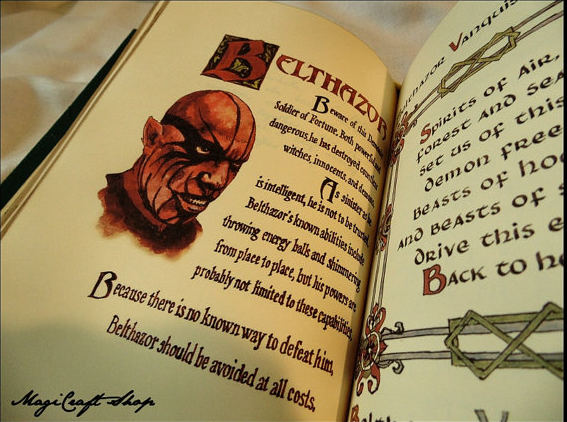 BELTHAZOR
Beware of this Demonic
Soldier of Fortune. Both powerful and
dangerous, he has destroyed countless
witches, innocents, and demons.
As sinister as he
is intelligent, he is not to be trusted.
Belthazor's known abilities include
throwing energy balls and shimmering
from place to place, but his powers are
probably not limited to these capabilities.
Because there is no known way to defeat him,
Belthazor should be avoided at all costs.
Vanquis
Spirits of air,
forest and sea
set us of this
demon free
Beasts of hoo
and beasts of s
drive this e
Back to he
MagiCraft Shop